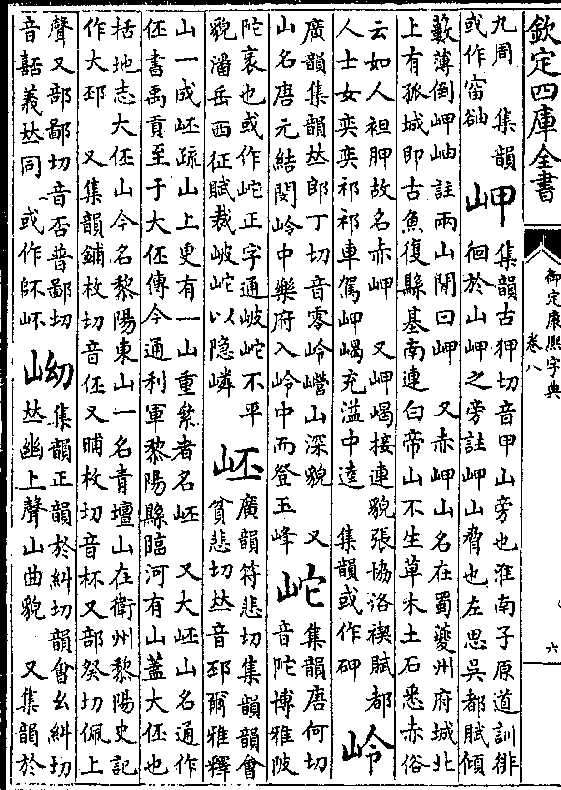 欽定四庫全書
御定康熙字典
卷八
六
九周　集韻
或作
岬
集韻古狎切音甲山旁也淮南子原道訓徘
徊於山岬之旁註岬山脅也左思吳都賦傾
藪薄倒岬岫註兩山間曰岬　又赤岬山名在蜀夔州府城北
上有孤城即古魚復縣基南連白帝山不生草木土石悉赤俗
云如人袒胛故名赤岬　又岬嵑接連貌張協洛禊賦都
人士女奕奕祁祁車駕岬嵑充溢中逵　集韻或作砷
岭
廣韻集韻𠀤郎丁切音零岭巆山深貌　又
山名唐元結閔岭中樂府入岭中而登玉峰
岮
集韻唐何切
音陀博雅陂
陀衺也或作岮正字通岐岮不平
貌潘岳西征賦裁岐岮以隱嶙
岯
廣韻符悲切集韻韻會
貧悲切𠀤音邳爾雅釋
山一成岯疏山上更有一山重累者名岯　又大岯山名通作
伾書禹貢至于大伾傳今通利軍黎陽縣臨河有山蓋大伾也
括地志大伾山今名黎陽東山一名青壇山在衛州黎陽史記
作大邳　又集韻鋪枚切音伾又晡枚切音杯又部癸切佩上
聲又部鄙切音否普鄙切
音嚭義𠀤同　或作
岰
集韻正韻於糾切韻會幺糾切
𠀤幽上聲山曲貌　又集韻於